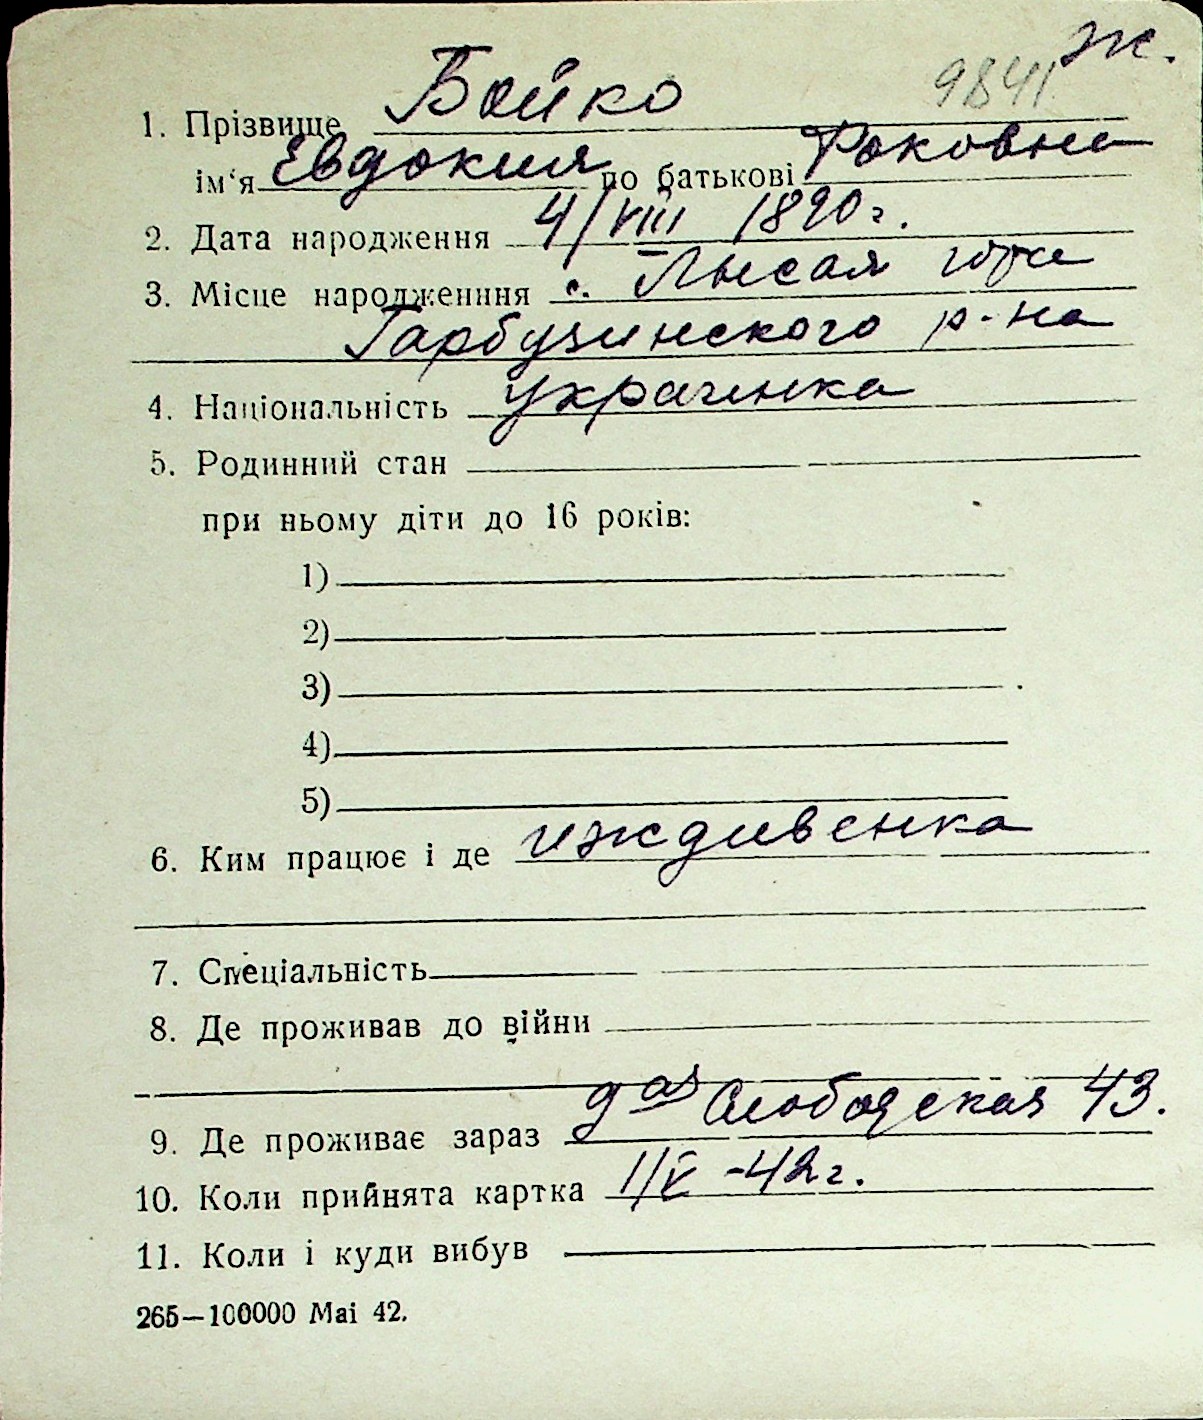 ж.
9841
1. Прізвище Бойко
ім‘я Евдокия по батькові Фоковна
2. Дата народження 4/VIII 1890 г.
3. Місце народженння с. Лысая гора
Гарбузинского р-на
4. Національність украинка
5. Родинний стан
при ньому діти до 16 років:
1)
2)
3)
4)
5)
6. Ким працює і де иждивенка
7. Спеціальність
8. Де проживав до війни
9. Де проживає зараз Слободская 43.
10. Коли прийнята картка 1/V-42 г.
11. Коли і куди вибув
265—100000 Mai 42.